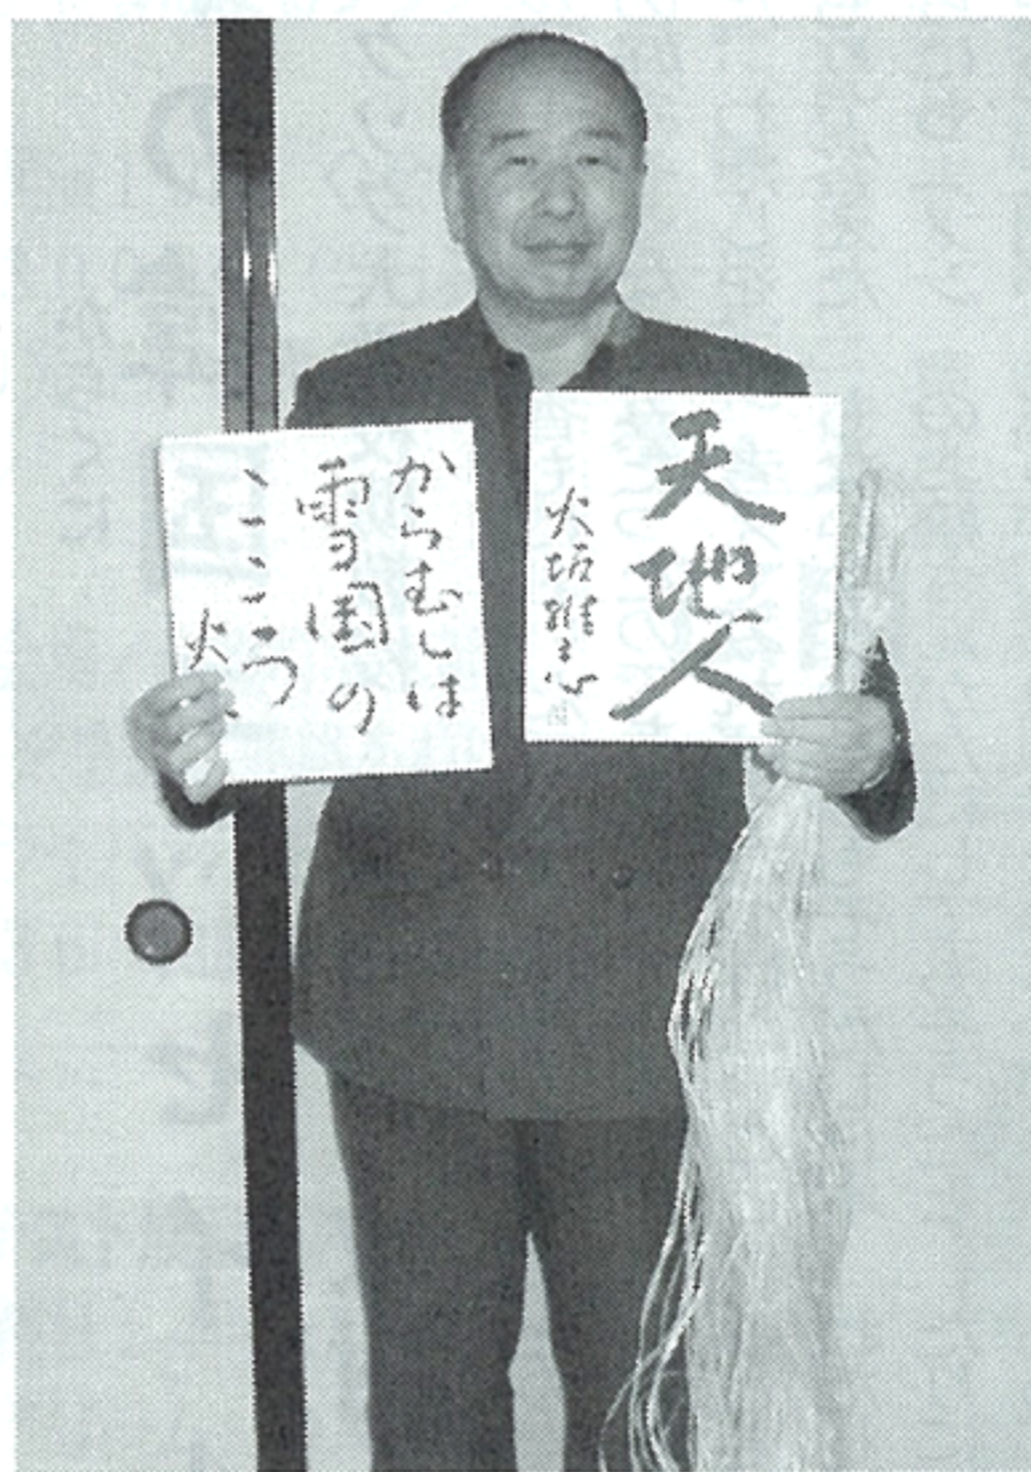 天地人
火坂雅志
からむしは
雪国の
こころ
火